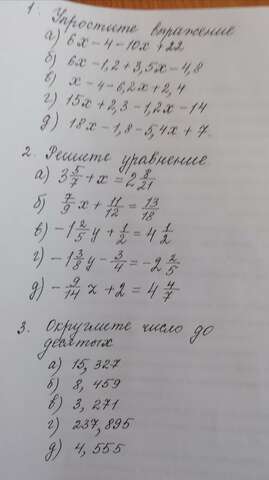 1. Упростите выражение
а) 6x - 4 - 10x + 22
б) 6x - 1,2 + 3,5x - 4,8
в) x - 4 - 6,2x + 2,4
г) 15x + 2,3 - 1,2x - 14
д) 18x - 1,8 - 5,4x + 7.
2. Решите уравнение
а) 3 5/7 + x = 2 8/21
б) 7/9 x + 11/12 = 13/18
в) -1 2/5 y + 1/2 = 4 1/2
г) -1 3/8 y - 3/4 = -2 3/5
д) - 9/14 z + 2 = 4 4/7
3. Округлите число до
десятых
а) 15,327
б) 8,459
в) 3,271
г) 237,895
д) 4,555